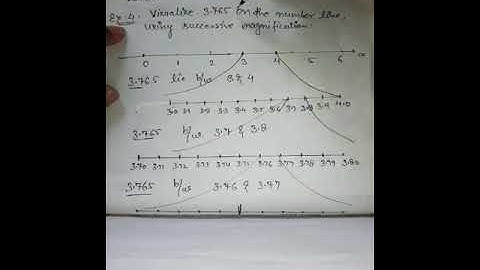 Ex 4: Visualize 3.765 on the number line,
using successive magnification.
0 1 2 3 4 5 6
3.765 lie b/w 3 & 4
3.0 3.1 3.2 3.3 3.4 3.5 3.6 3.7 3.8 3.9 4.0
3.765 b/w 3.7 & 3.8
3.70 3.71 3.72 3.73 3.74 3.75 3.76 3.77 3.78 3.79 3.80
3.765 b/w 3.76 & 3.77